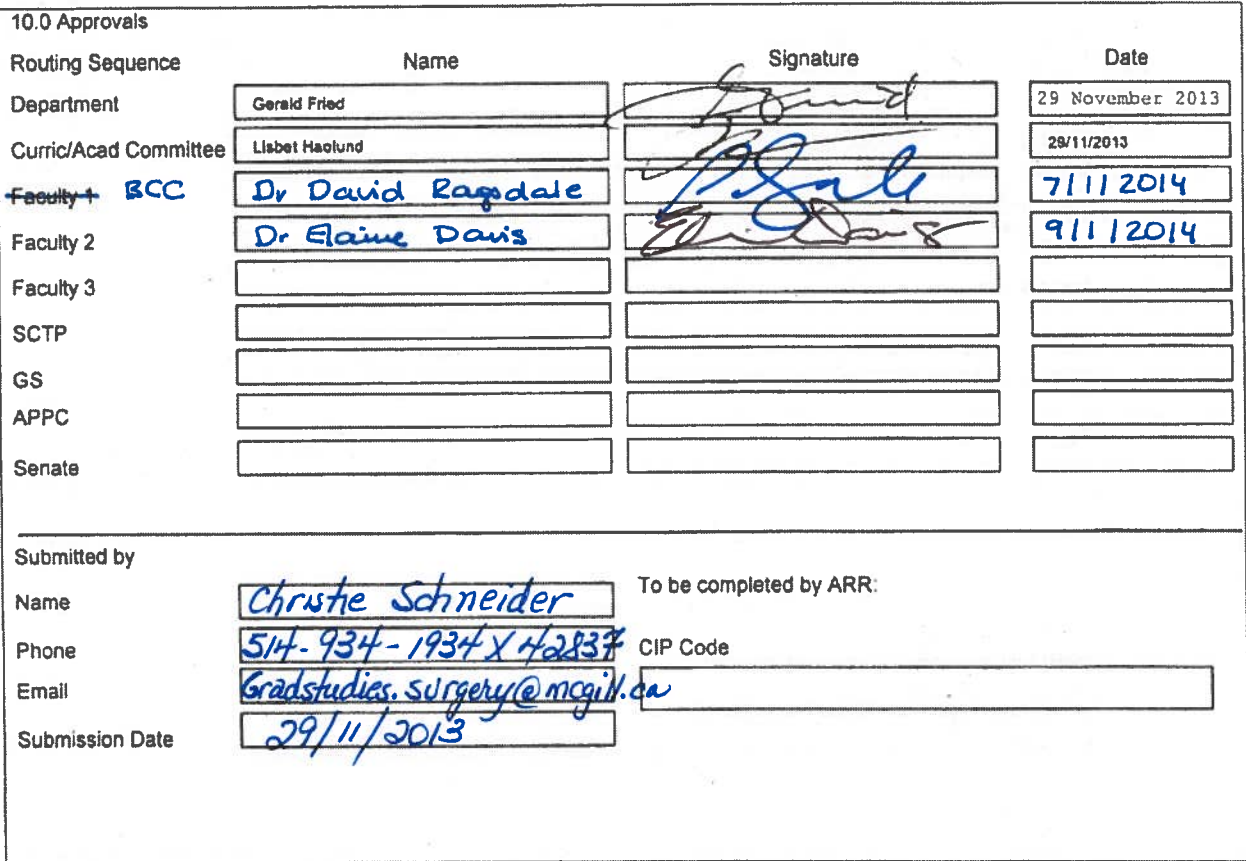 10.0 Approvals
Routing Sequence Name Signature Date
Department Gerald Fried 29 November 2013
Curric/Acad Committee Lisbet Haglund 29/11/2013
Faculty 1 BCC Dr David Ragsdale 7/1/2014
Faculty 2 Dr Elaine Davis Elaine Davis 9/1/2014
Faculty 3
SCTP
GS
APPC
Senate
Submitted by
Name Christie Schneider To be completed by ARR:
Phone 514-934-1934 X 42837 CIP Code
Email Gradstudies.surgery@mcgill.ca
Submission Date 29/11/2013